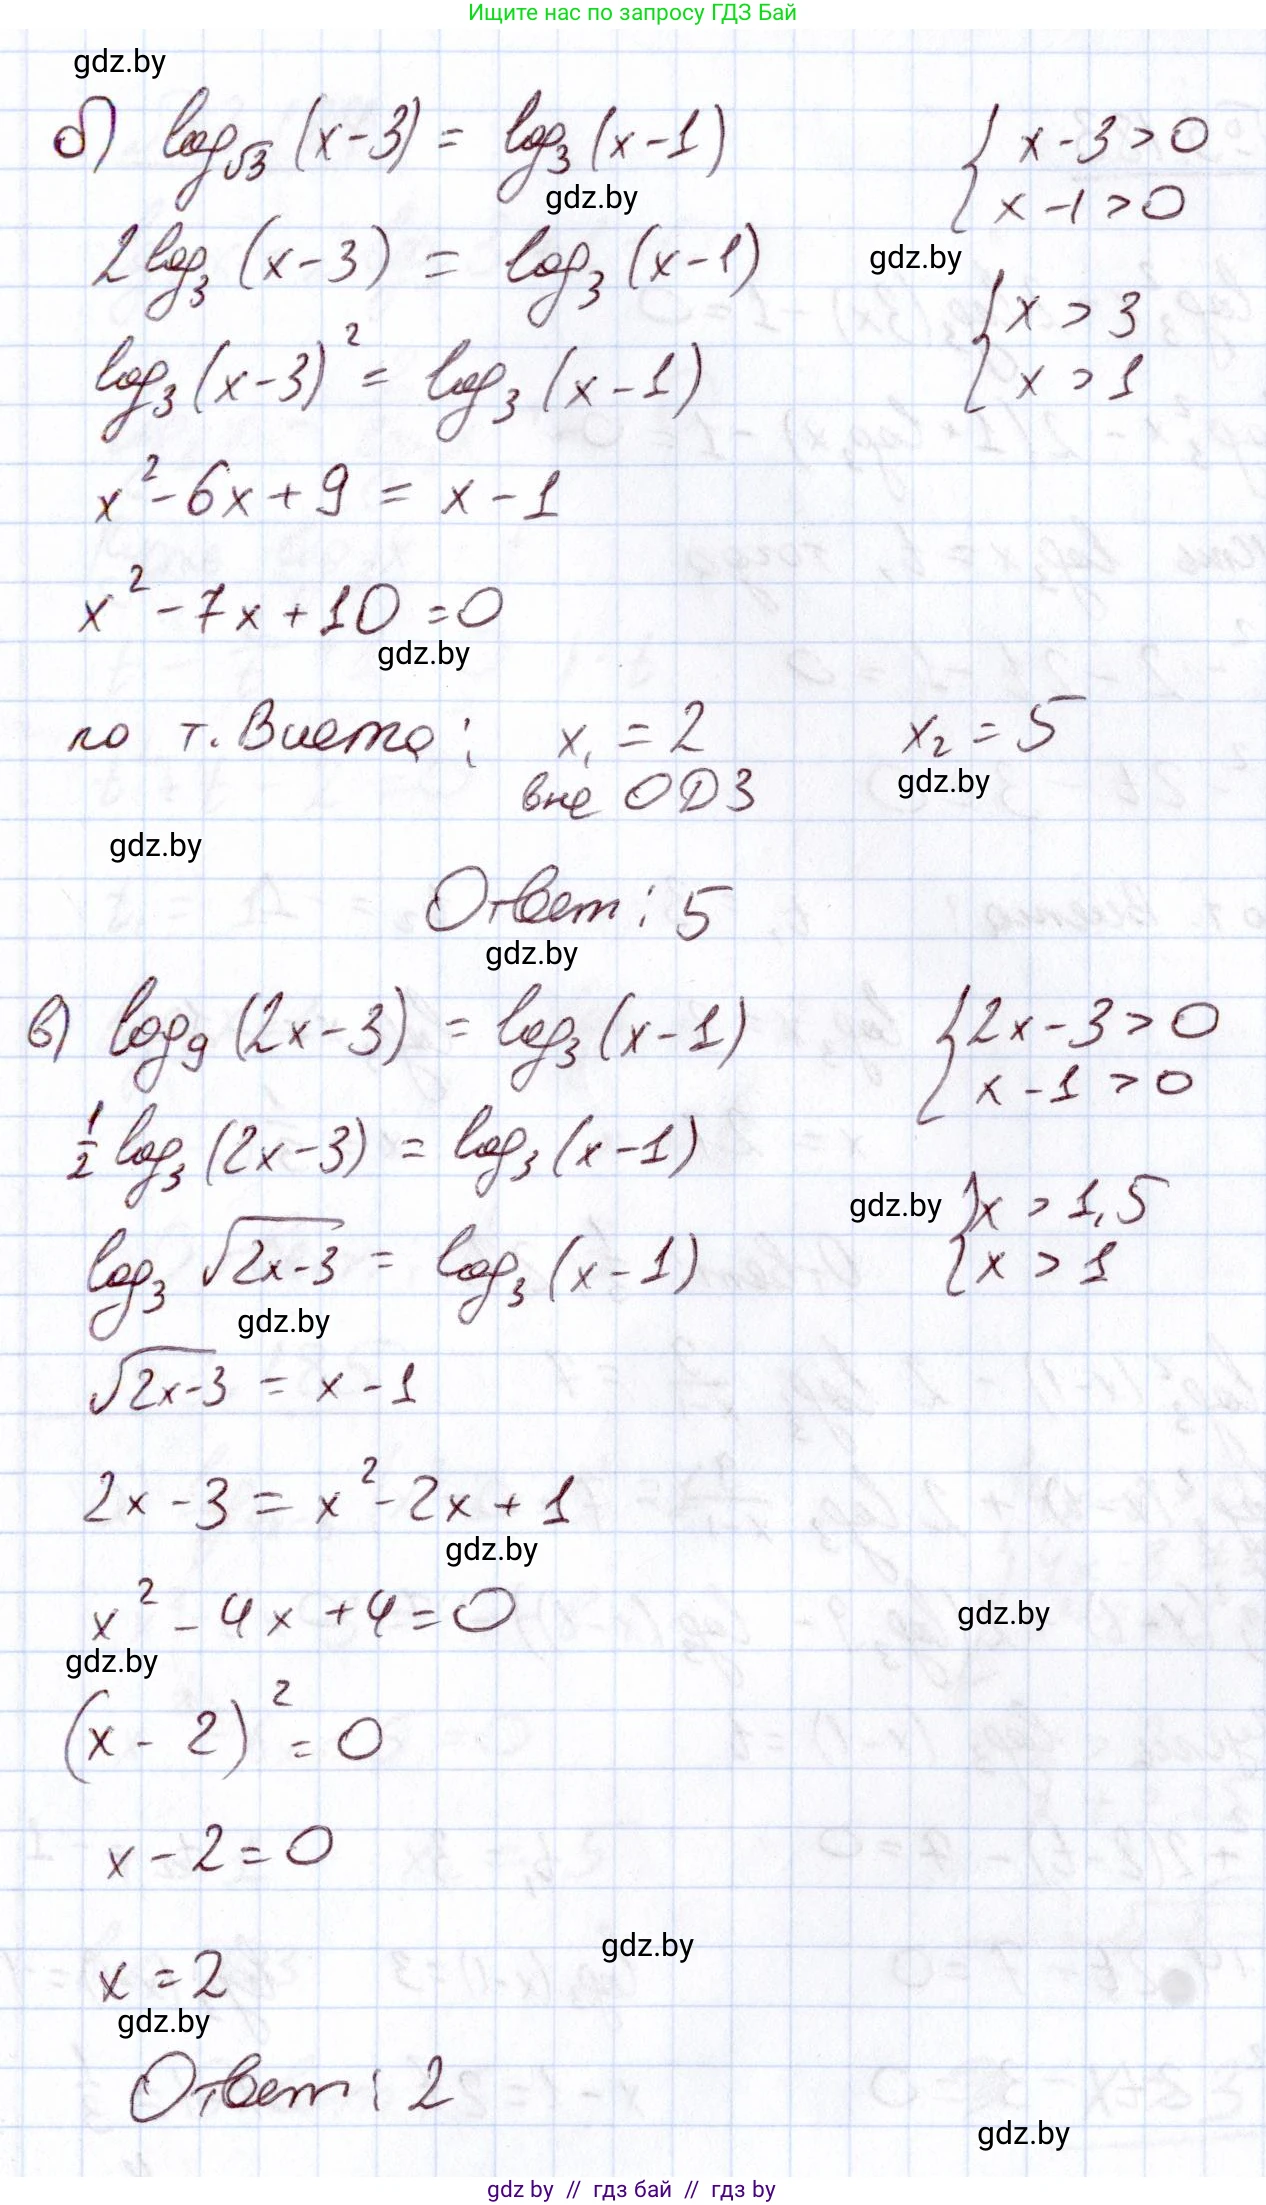 Ищите нас по запросу ГДЗ Бай
gdz.by
б) log_√3 (x-3) = log_3 (x-1) { x-3>0
gdz.by x-1>0
2log_3 (x-3) = log_3 (x-1) gdz.by
{ x > 3
log_3 (x-3)^2 = log_3 (x-1) x > 1
x^2-6x+9 = x-1
x^2-7x+10=0
gdz.by
по т. Виета: x_1 = 2 x_2 = 5
вне ОДЗ gdz.by
gdz.by
Ответ: 5
gdz.by
в) log_9 (2x-3) = log_3 (x-1) { 2x-3>0
x-1>0
1/2 log_3 (2x-3) = log_3 (x-1)
gdz.by { x > 1,5
log_3 √(2x-3) = log_3 (x-1) x > 1
gdz.by
√(2x-3) = x-1
2x-3 = x^2-2x+1
gdz.by
x^2-4x+4=0 gdz.by
gdz.by
(x-2)^2=0
x-2=0
gdz.by
x=2
gdz.by
Ответ: 2
gdz.by
gdz by // гдз бай // гдз by